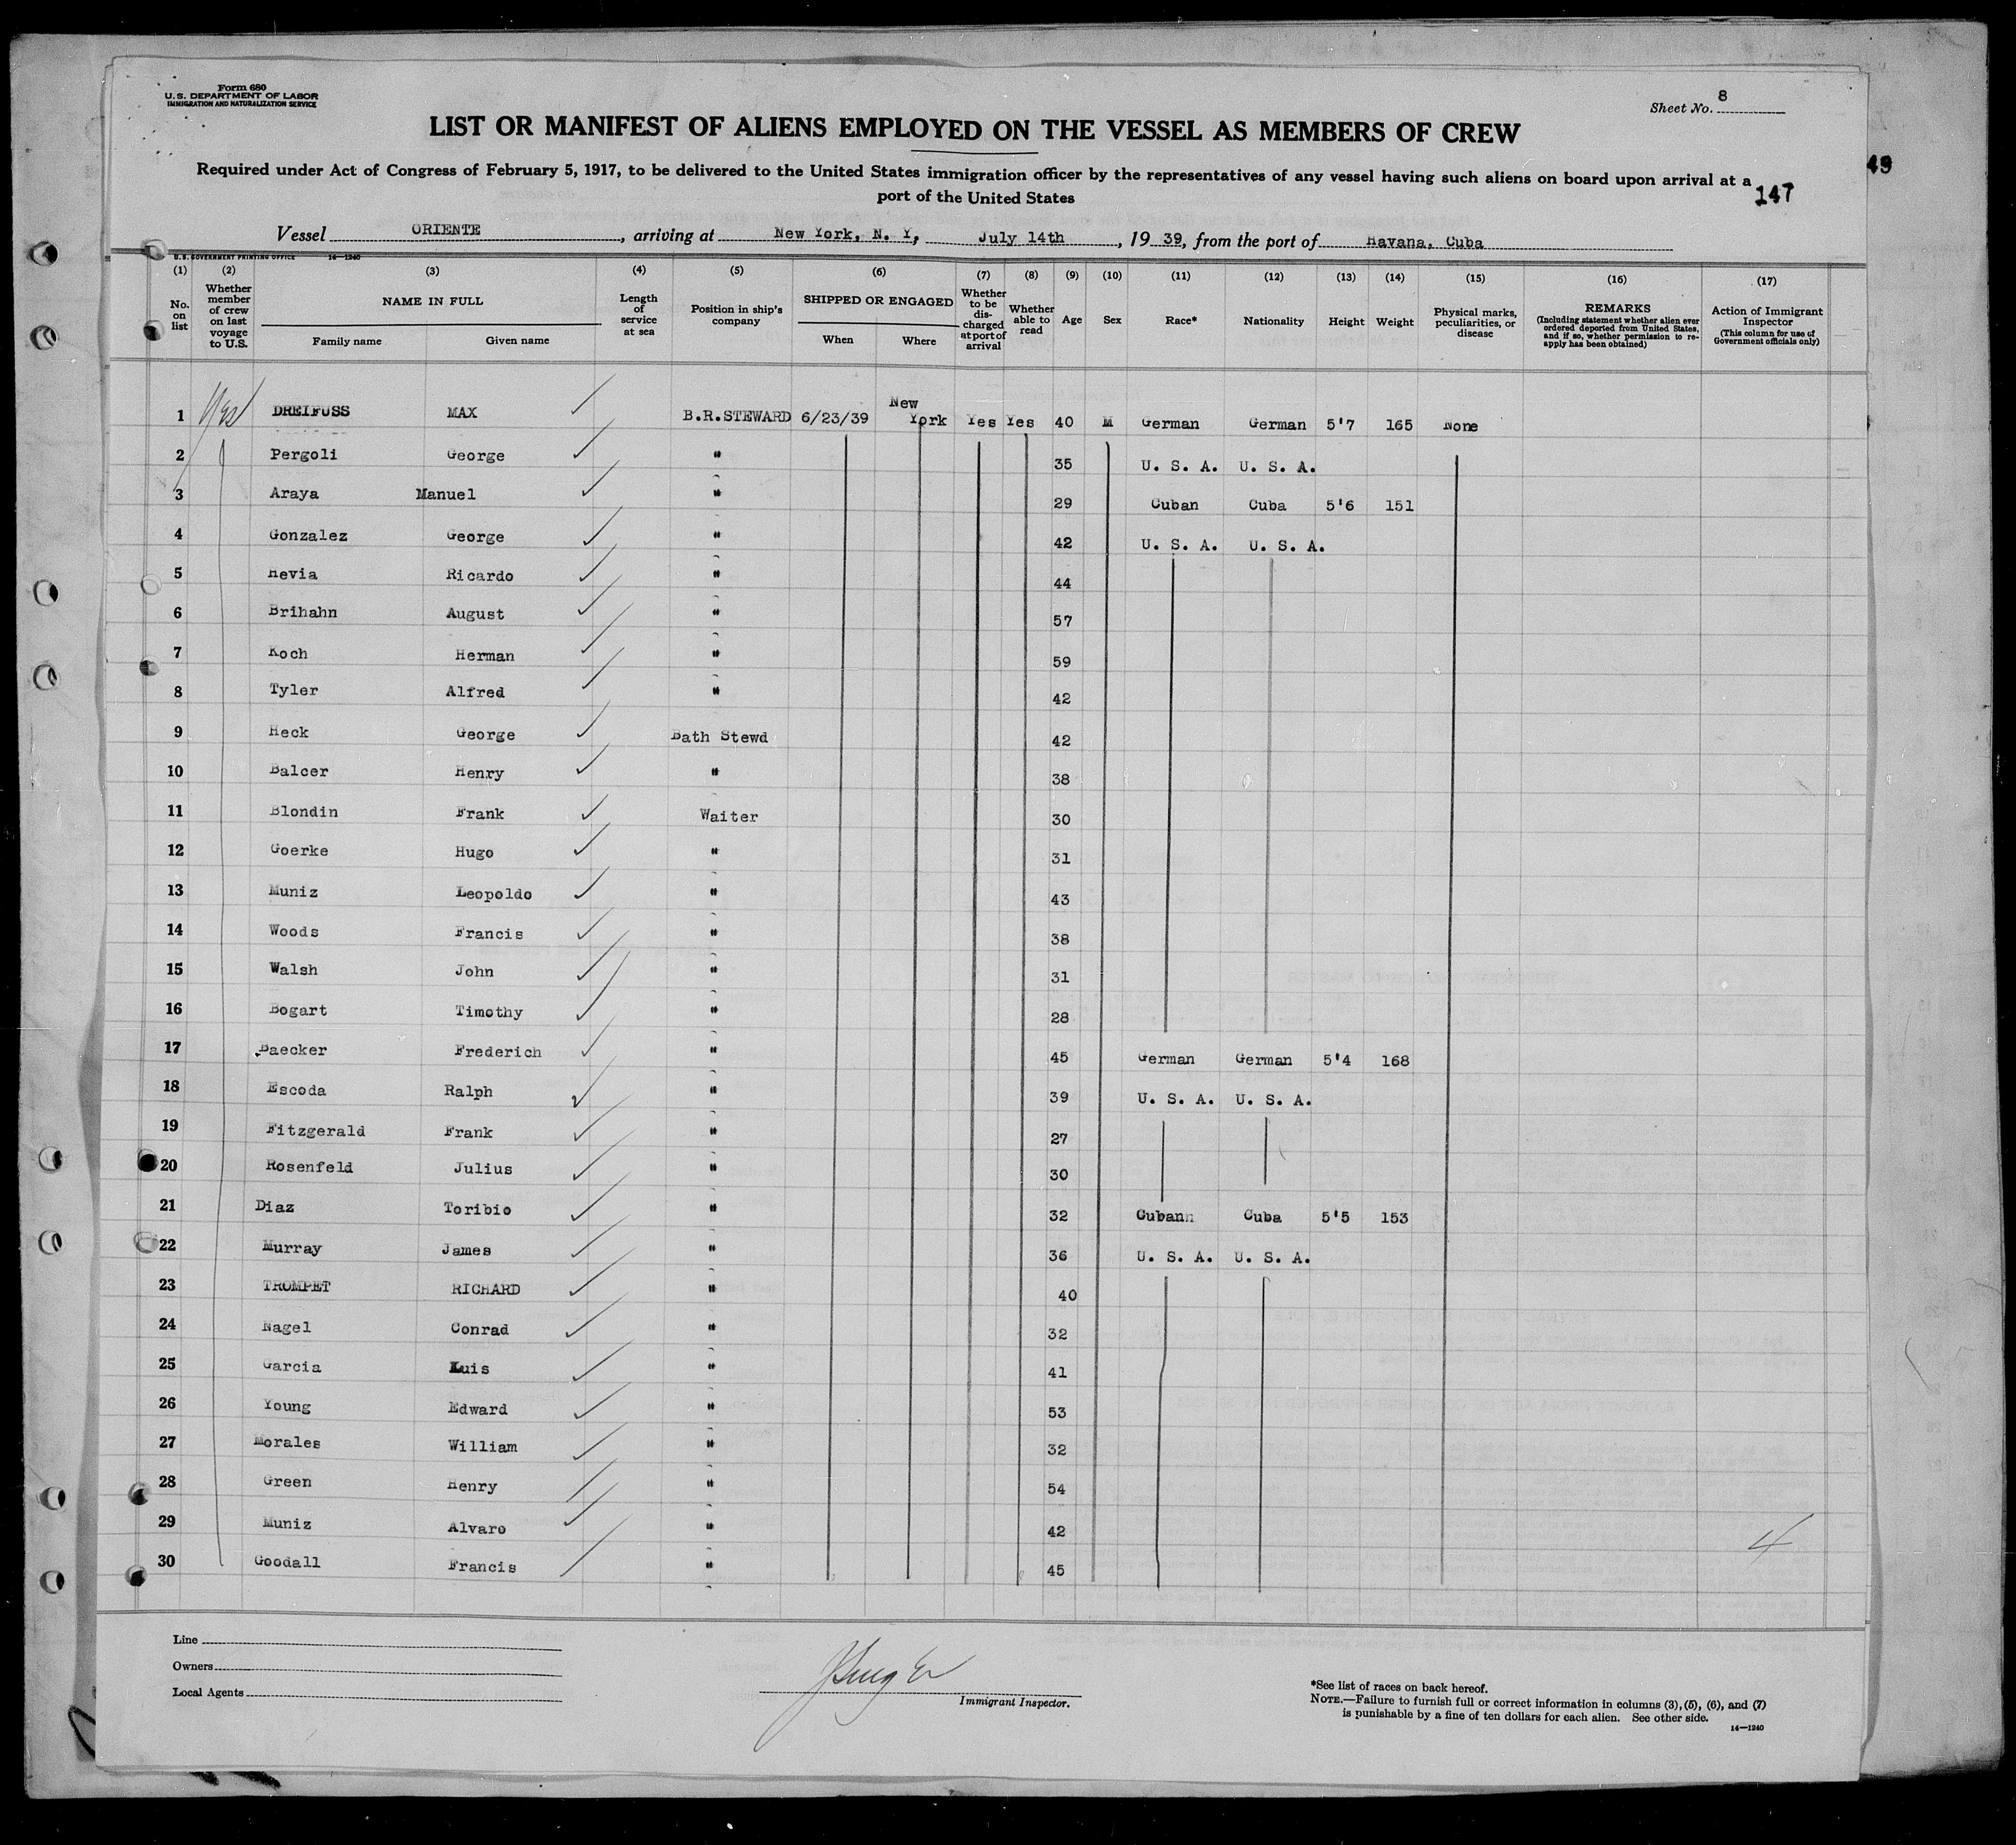 Form 680
U.S. DEPARTMENT OF LABOR
IMMIGRATION AND NATURALIZATION SERVICE
Sheet No. 8
LIST OR MANIFEST OF ALIENS EMPLOYED ON THE VESSEL AS MEMBERS OF CREW
49
Required under Act of Congress of February 5, 1917, to be delivered to the United States immigration officer by the representatives of any vessel having such aliens on board upon arrival at a
port of the United States
147
Vessel ORIENTE, arriving at New York, N. Y, July 14th, 19 39, from the port of Havana, Cuba
U.S. GOVERNMENT PRINTING OFFICE 14—1240
(1) (2) (3) (4) (5) (6) (7) (8) (9) (10) (11) (12) (13) (14) (15) (16) (17)
No. on list
Whether member of crew on last voyage to U.S.
NAME IN FULL
Family name Given name
Length of service at sea
Position in ship's company
SHIPPED OR ENGAGED
When Where
Whether to be discharged at port of arrival
Whether able to read
Age
Sex
Race*
Nationality
Height
Weight
Physical marks, peculiarities, or disease
REMARKS
(Including statement whether alien ever ordered deported from United States, and if so, whether permission to reapply has been obtained)
Action of Immigrant Inspector
(This column for use of Government officials only)
1 Yes DREIFUSS MAX B.R.STEWARD 6/23/39 New York Yes Yes 40 M German German 5'7 165 None
2 Pergoli George " 35 U. S. A. U. S. A.
3 Araya Manuel " 29 Cuban Cuba 5'6 151
4 Gonzalez George " 42 U. S. A. U. S. A.
5 Hevia Ricardo " 44
6 Brihahn August " 57
7 Koch Herman " 59
8 Tyler Alfred " 42
9 Heck George Bath Stewd 42
10 Balcer Henry " 38
11 Blondin Frank Waiter 30
12 Goerke Hugo " 31
13 Muniz Leopoldo " 43
14 Woods Francis " 38
15 Walsh John " 31
16 Bogart Timothy " 28
17 Baecker Frederich " 45 German German 5'4 168
18 Escoda Ralph " 39 U. S. A. U. S. A.
19 Fitzgerald Frank " 27
20 Rosenfeld Julius " 30
21 Diaz Toribio " 32 Cubann Cuba 5'5 153
22 Murray James " 36 U. S. A. U. S. A.
23 TROMPET RICHARD " 40
24 Nagel Conrad " 32
25 Garcia Luis " 41
26 Young Edward " 53
27 Morales William " 32
28 Green Henry " 54
29 Muniz Alvaro " 42
30 Goodall Francis " 45
4
Line
Owners
Local Agents
Immigrant Inspector.
*See list of races on back hereof.
NOTE.—Failure to furnish full or correct information in columns (3), (5), (6), and (7)
is punishable by a fine of ten dollars for each alien. See other side.
14—1240